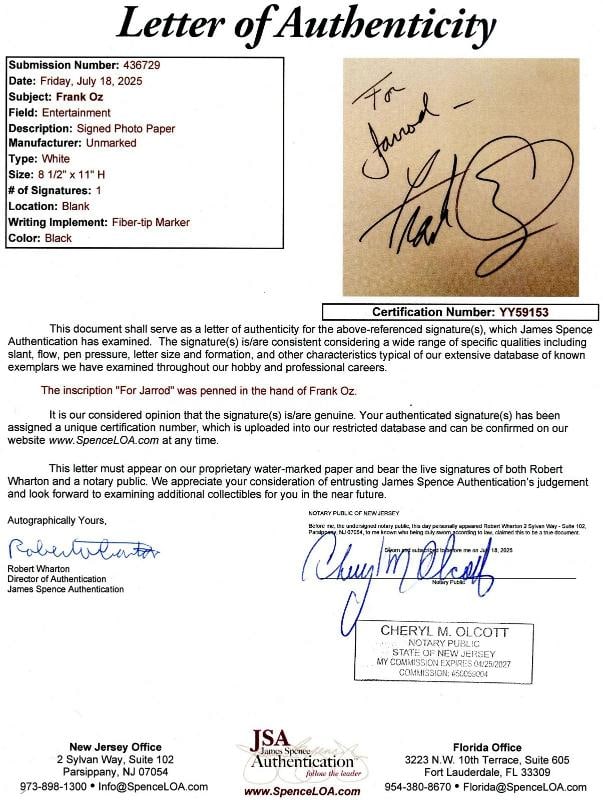 Letter of Authenticity
Submission Number: 436729
Date: Friday, July 18, 2025
Subject: Frank Oz
Field: Entertainment
Description: Signed Photo Paper
Manufacturer: Unmarked
Type: White
Size: 8 1/2" x 11" H
# of Signatures: 1
Location: Blank
Writing Implement: Fiber-tip Marker
Color: Black
For
Jarrod –
Frank Oz
Certification Number: YY59153
This document shall serve as a letter of authenticity for the above-referenced signature(s), which James Spence
Authentication has examined. The signature(s) is/are consistent considering a wide range of specific qualities including
slant, flow, pen pressure, letter size and formation, and other characteristics typical of our extensive database of known
exemplars we have examined throughout our hobby and professional careers.
The inscription "For Jarrod" was penned in the hand of Frank Oz.
It is our considered opinion that the signature(s) is/are genuine. Your authenticated signature(s) has been
assigned a unique certification number, which is uploaded into our restricted database and can be confirmed on our
website www.SpenceLOA.com at any time.
This letter must appear on our proprietary water-marked paper and bear the live signatures of both Robert
Wharton and a notary public. We appreciate your consideration of entrusting James Spence Authentication's judgement
and look forward to examining additional collectibles for you in the near future.
Autographically Yours,
Robert Wharton
Robert Wharton
Director of Authentication
James Spence Authentication
NOTARY PUBLIC OF NEW JERSEY
Before me, the undersigned notary public, this day personally appeared Robert Wharton 2 Sylvan Way - Suite 102,
Parsippany, NJ 07054, to me known who being duly sworn according to law, claimed this to be a true document.
Sworn and subscribed to before me on July 18, 2025
Cheryl M Olcott
Notary Public
CHERYL M. OLCOTT
NOTARY PUBLIC
STATE OF NEW JERSEY
MY COMMISSION EXPIRES 04/25/2027
COMMISSION: #50059004
New Jersey Office
2 Sylvan Way, Suite 102
Parsippany, NJ 07054
973-898-1300 • Info@SpenceLOA.com
JSA
James Spence
Authentication
follow the leader
www.SpenceLOA.com
Florida Office
3223 N.W. 10th Terrace, Suite 605
Fort Lauderdale, FL 33309
954-380-8670 • Florida@SpenceLOA.com